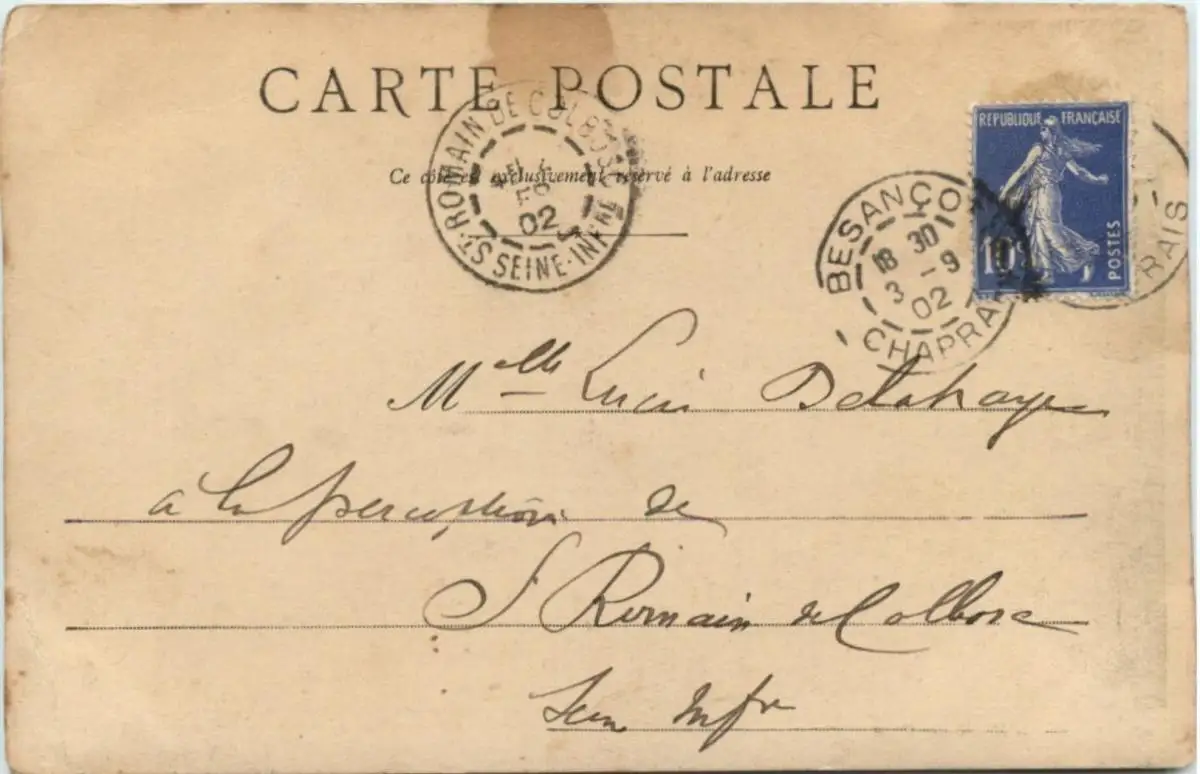 CARTE POSTALE
Ce côté est exclusivement réservé à l'adresse
ST ROMAIN DE COLBOSC
4
02
SEINE-INFRE
BESANÇON
18 30
3 - 9
02
CHAPRAIS
RAIS
REPUBLIQUE FRANÇAISE
10c
POSTES
Melle Lucie Delahaye
à la perception de
St Romain de Colbosc
Seine Infre